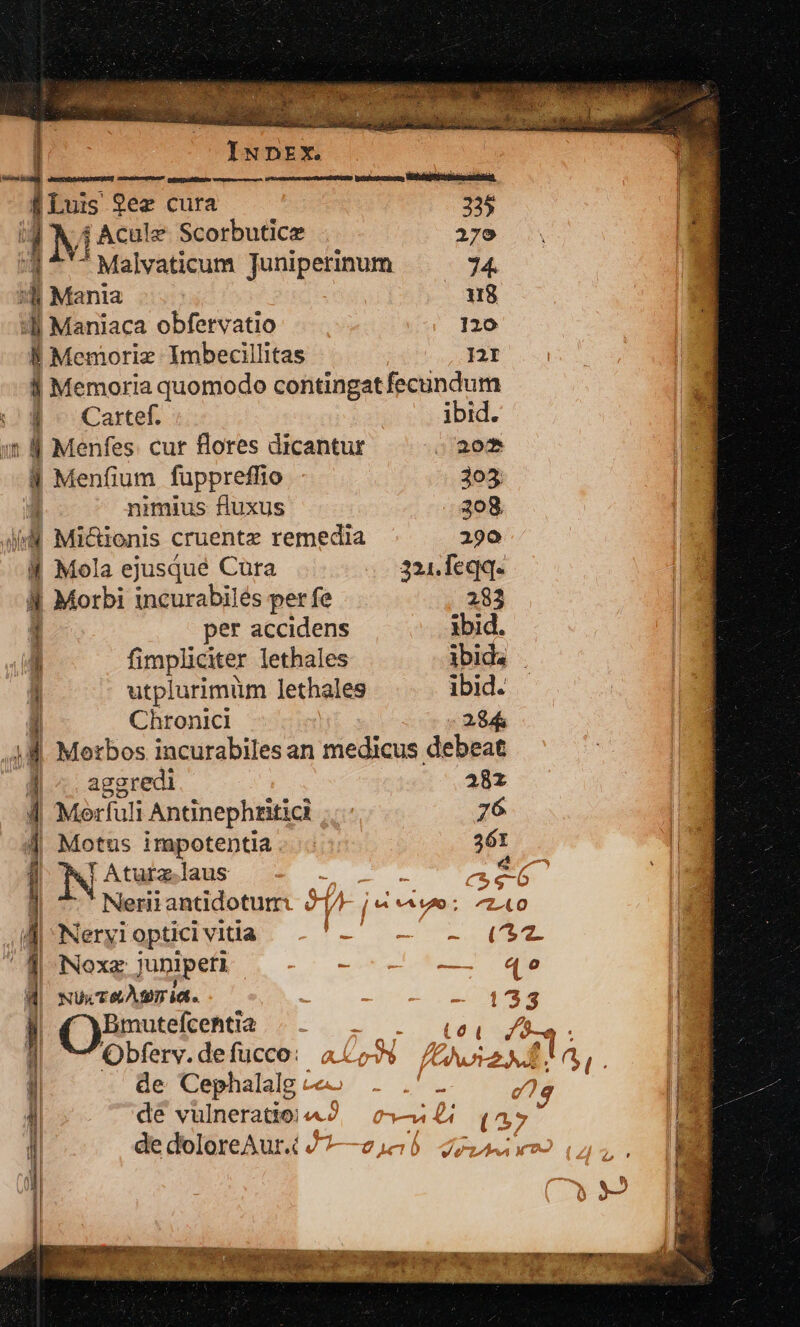 INDEX.
Luis ♀eæ cura 335
MAculæ Scorbuticæ 270
Malvaticum Juniperinum 74.
Mania 118
Maniaca obſervatio 120
Memoriæ Imbecillitas 121
Memoria quomodo contingat ſecundum
Carteſ. ibid.
Menſes cur flores dicantur 202
Menſium ſuppreſſio 303
nimius fluxus 308
Mictionis cruentæ remedia 290
Mola ejusque Cura 321. ſeqq.
Morbi incurabiles per ſe 283
per accidens ibid.
ſimpliciter lethales ibid.
utplurimùm lethales ibid.
Chronici 284
Morbos incurabiles an medicus debeat
aggredi 282
Morſuli Antinephritici 76
Motus impotentia 361
NAturæ laus
Nerii antidotum 240
Nervi optici vitia - - - - 132
Noxæ juniperi - - - — 40
Νυκταλωπία. - - - - 133
OBmuteſcentia - - -
Obſerv. de ſucco:
de Cephalalg
de vulneratio
de dolore Aur.